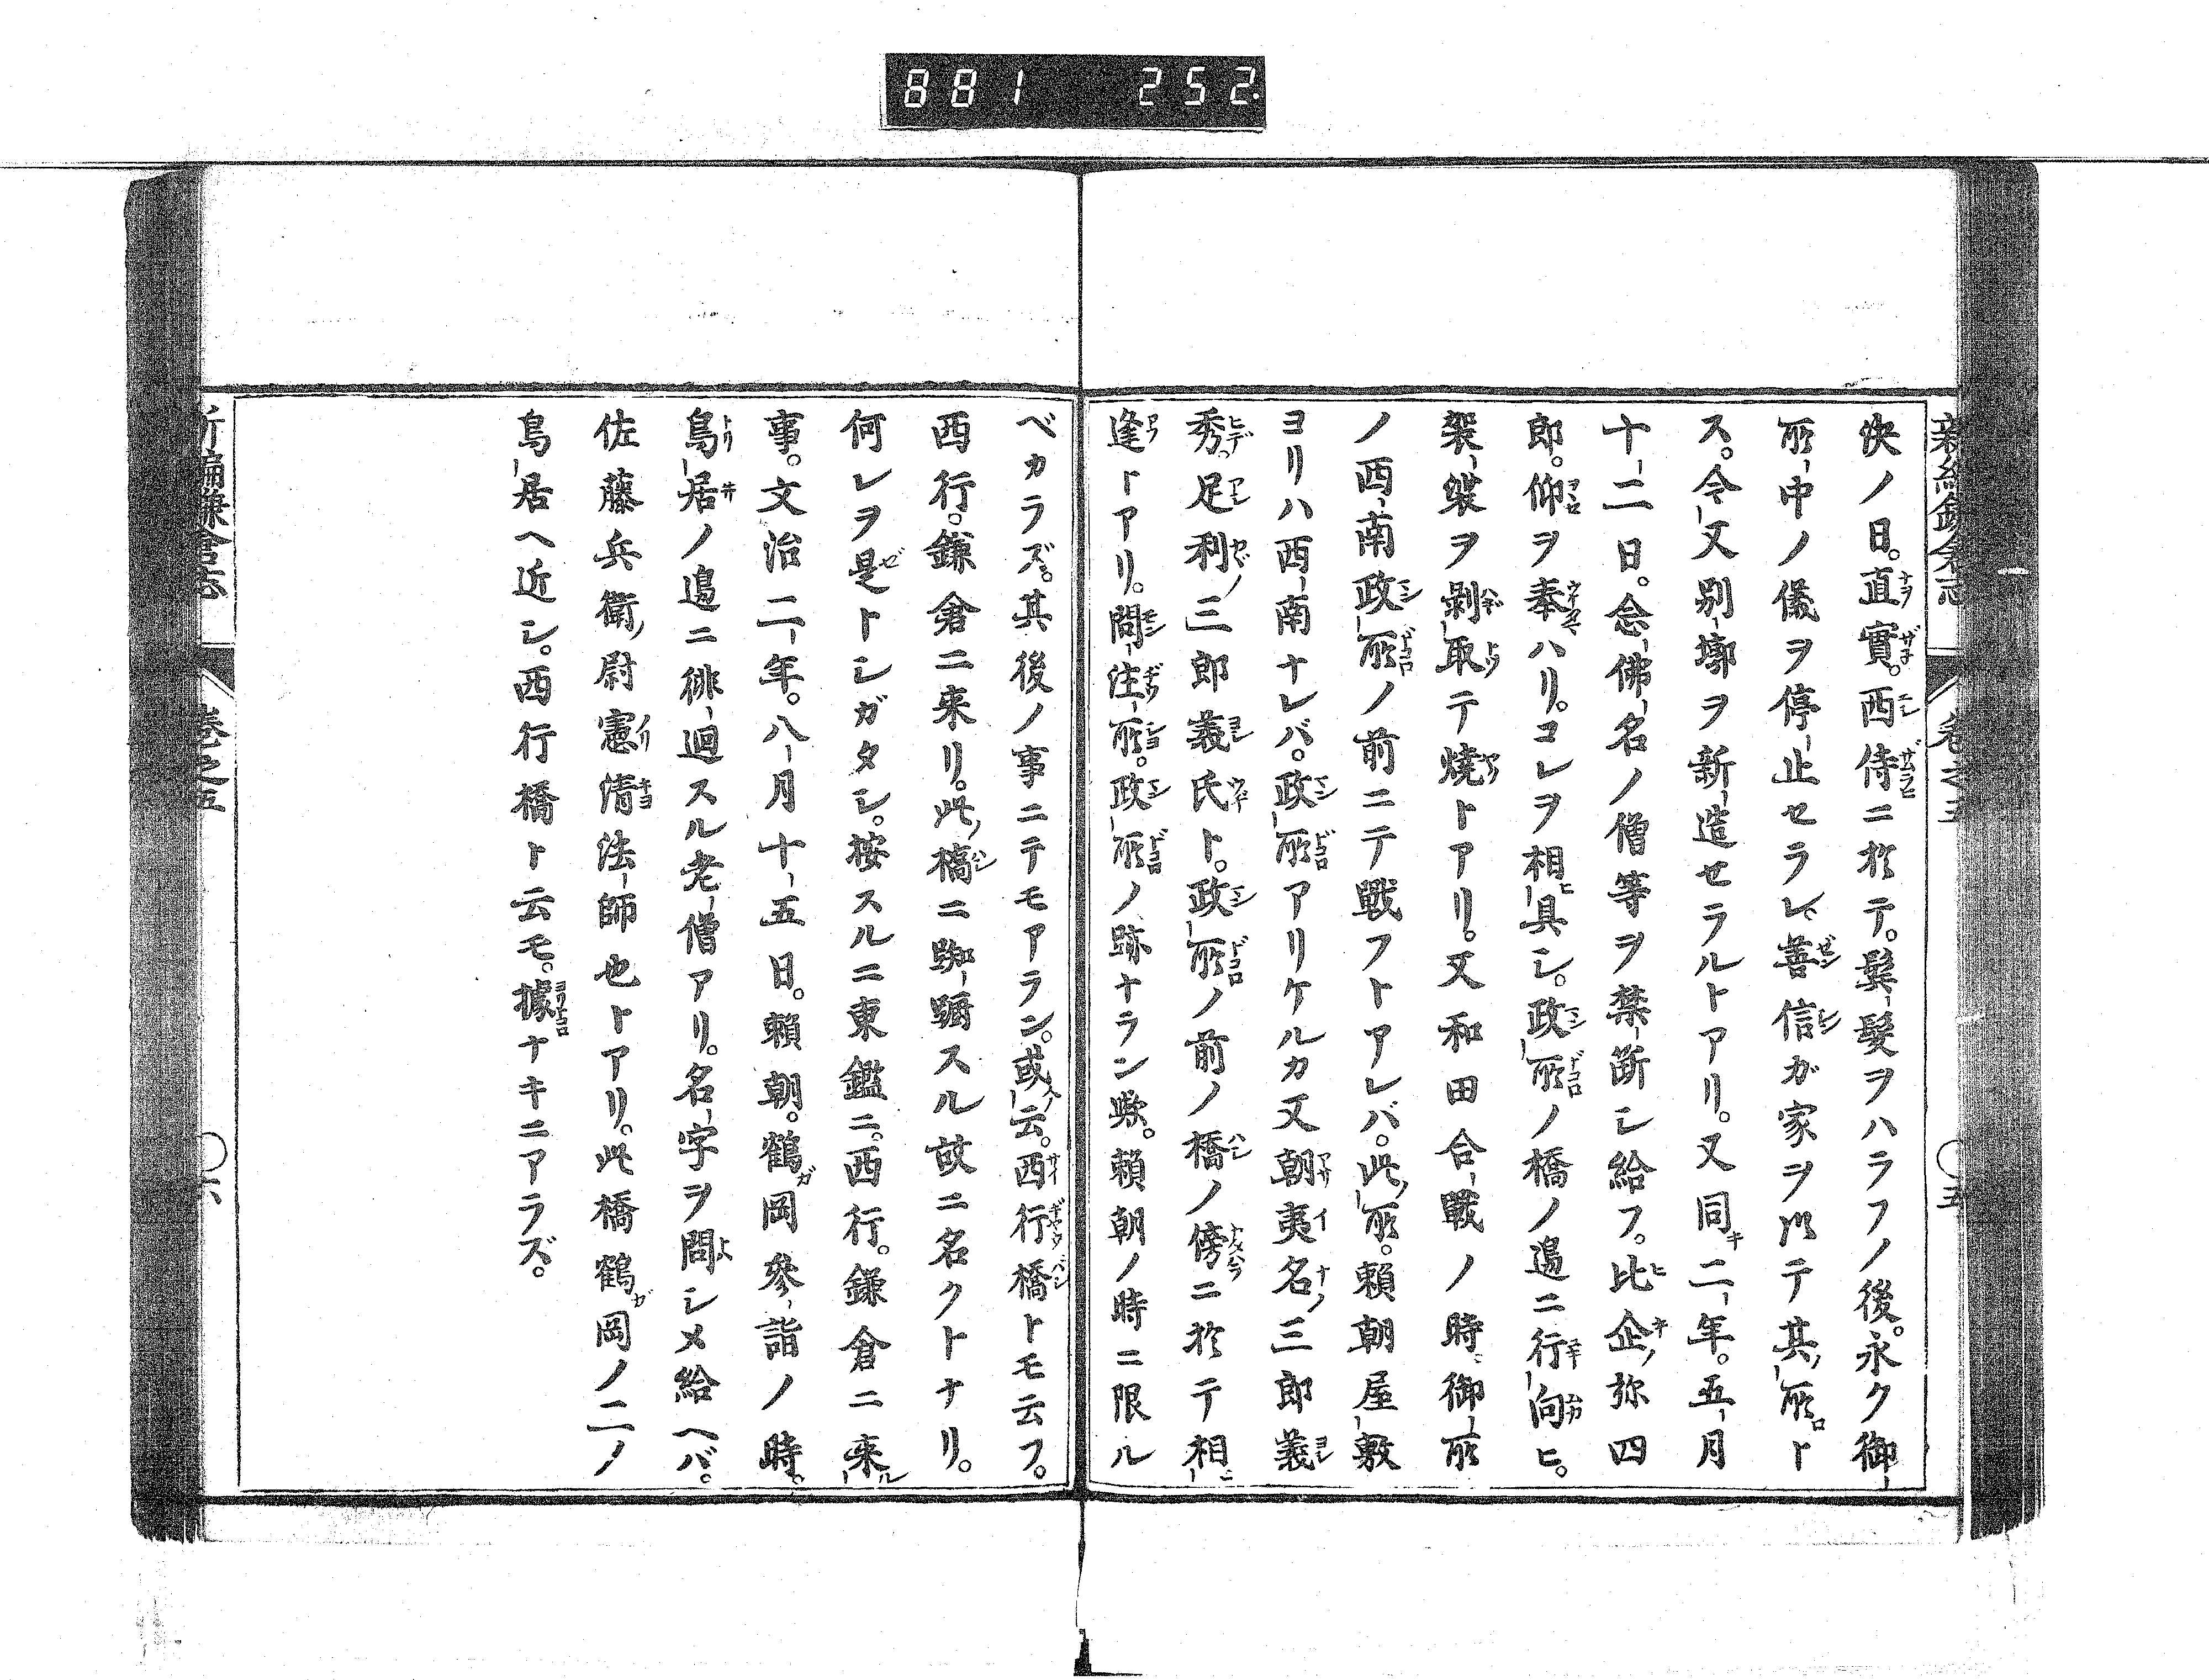 881 252
新編鎌倉志 卷之五 〇五
決ノ日。直實。西侍ニ於テ。鬢髮ヲハラフノ後。永ク御
所中ノ儀ヲ停止セラレ、善信ガ家ヲ以テ其所ト
ス。今又別墎ヲ新造セラルトアリ。又同二年。五月
十二日。念佛名ノ僧等ヲ禁斷シ給フ。比企弥四
郎。仰ヲ奉ハリ。コレヲ相具シ。政所ノ橋ノ邊ニ行向ヒ。
袈裟ヲ剝取テ燒トアリ。又和田合戰ノ時、御所
ノ西南政所ノ前ニテ戰フトアレバ。此所。賴朝屋敷
ヨリハ西南ナレバ。政所アリケルカ又朝夷名三郎義
秀。足利三郎義氏ト。政所ノ前ノ橋ノ傍ニ於テ相
逢トアリ。問注所。政所ノ跡ナラン歟。賴朝ノ時ニ限ル
ベカラズ。其後ノ事ニテモアラン。或云。西行橋トモ云フ。
西行。鎌倉ニ来リ。此橋ニ踟躕スル故ニ名クトナリ。
何レヲ是トシガタシ。按スルニ東鑑ニ。西行。鎌倉ニ来
事。文治二年。八月十五日。賴朝。鶴岡參詣ノ時。
鳥居ノ邊ニ徘迴スル老僧アリ。名字ヲ問シメ給ヘバ。
佐藤兵衛尉憲清法師也トアリ。此橋鶴岡ノ二ノ
鳥居ヘ近シ。西行橋ト云モ。據ナキニアラズ。
新編鎌倉志 卷之五 〇六